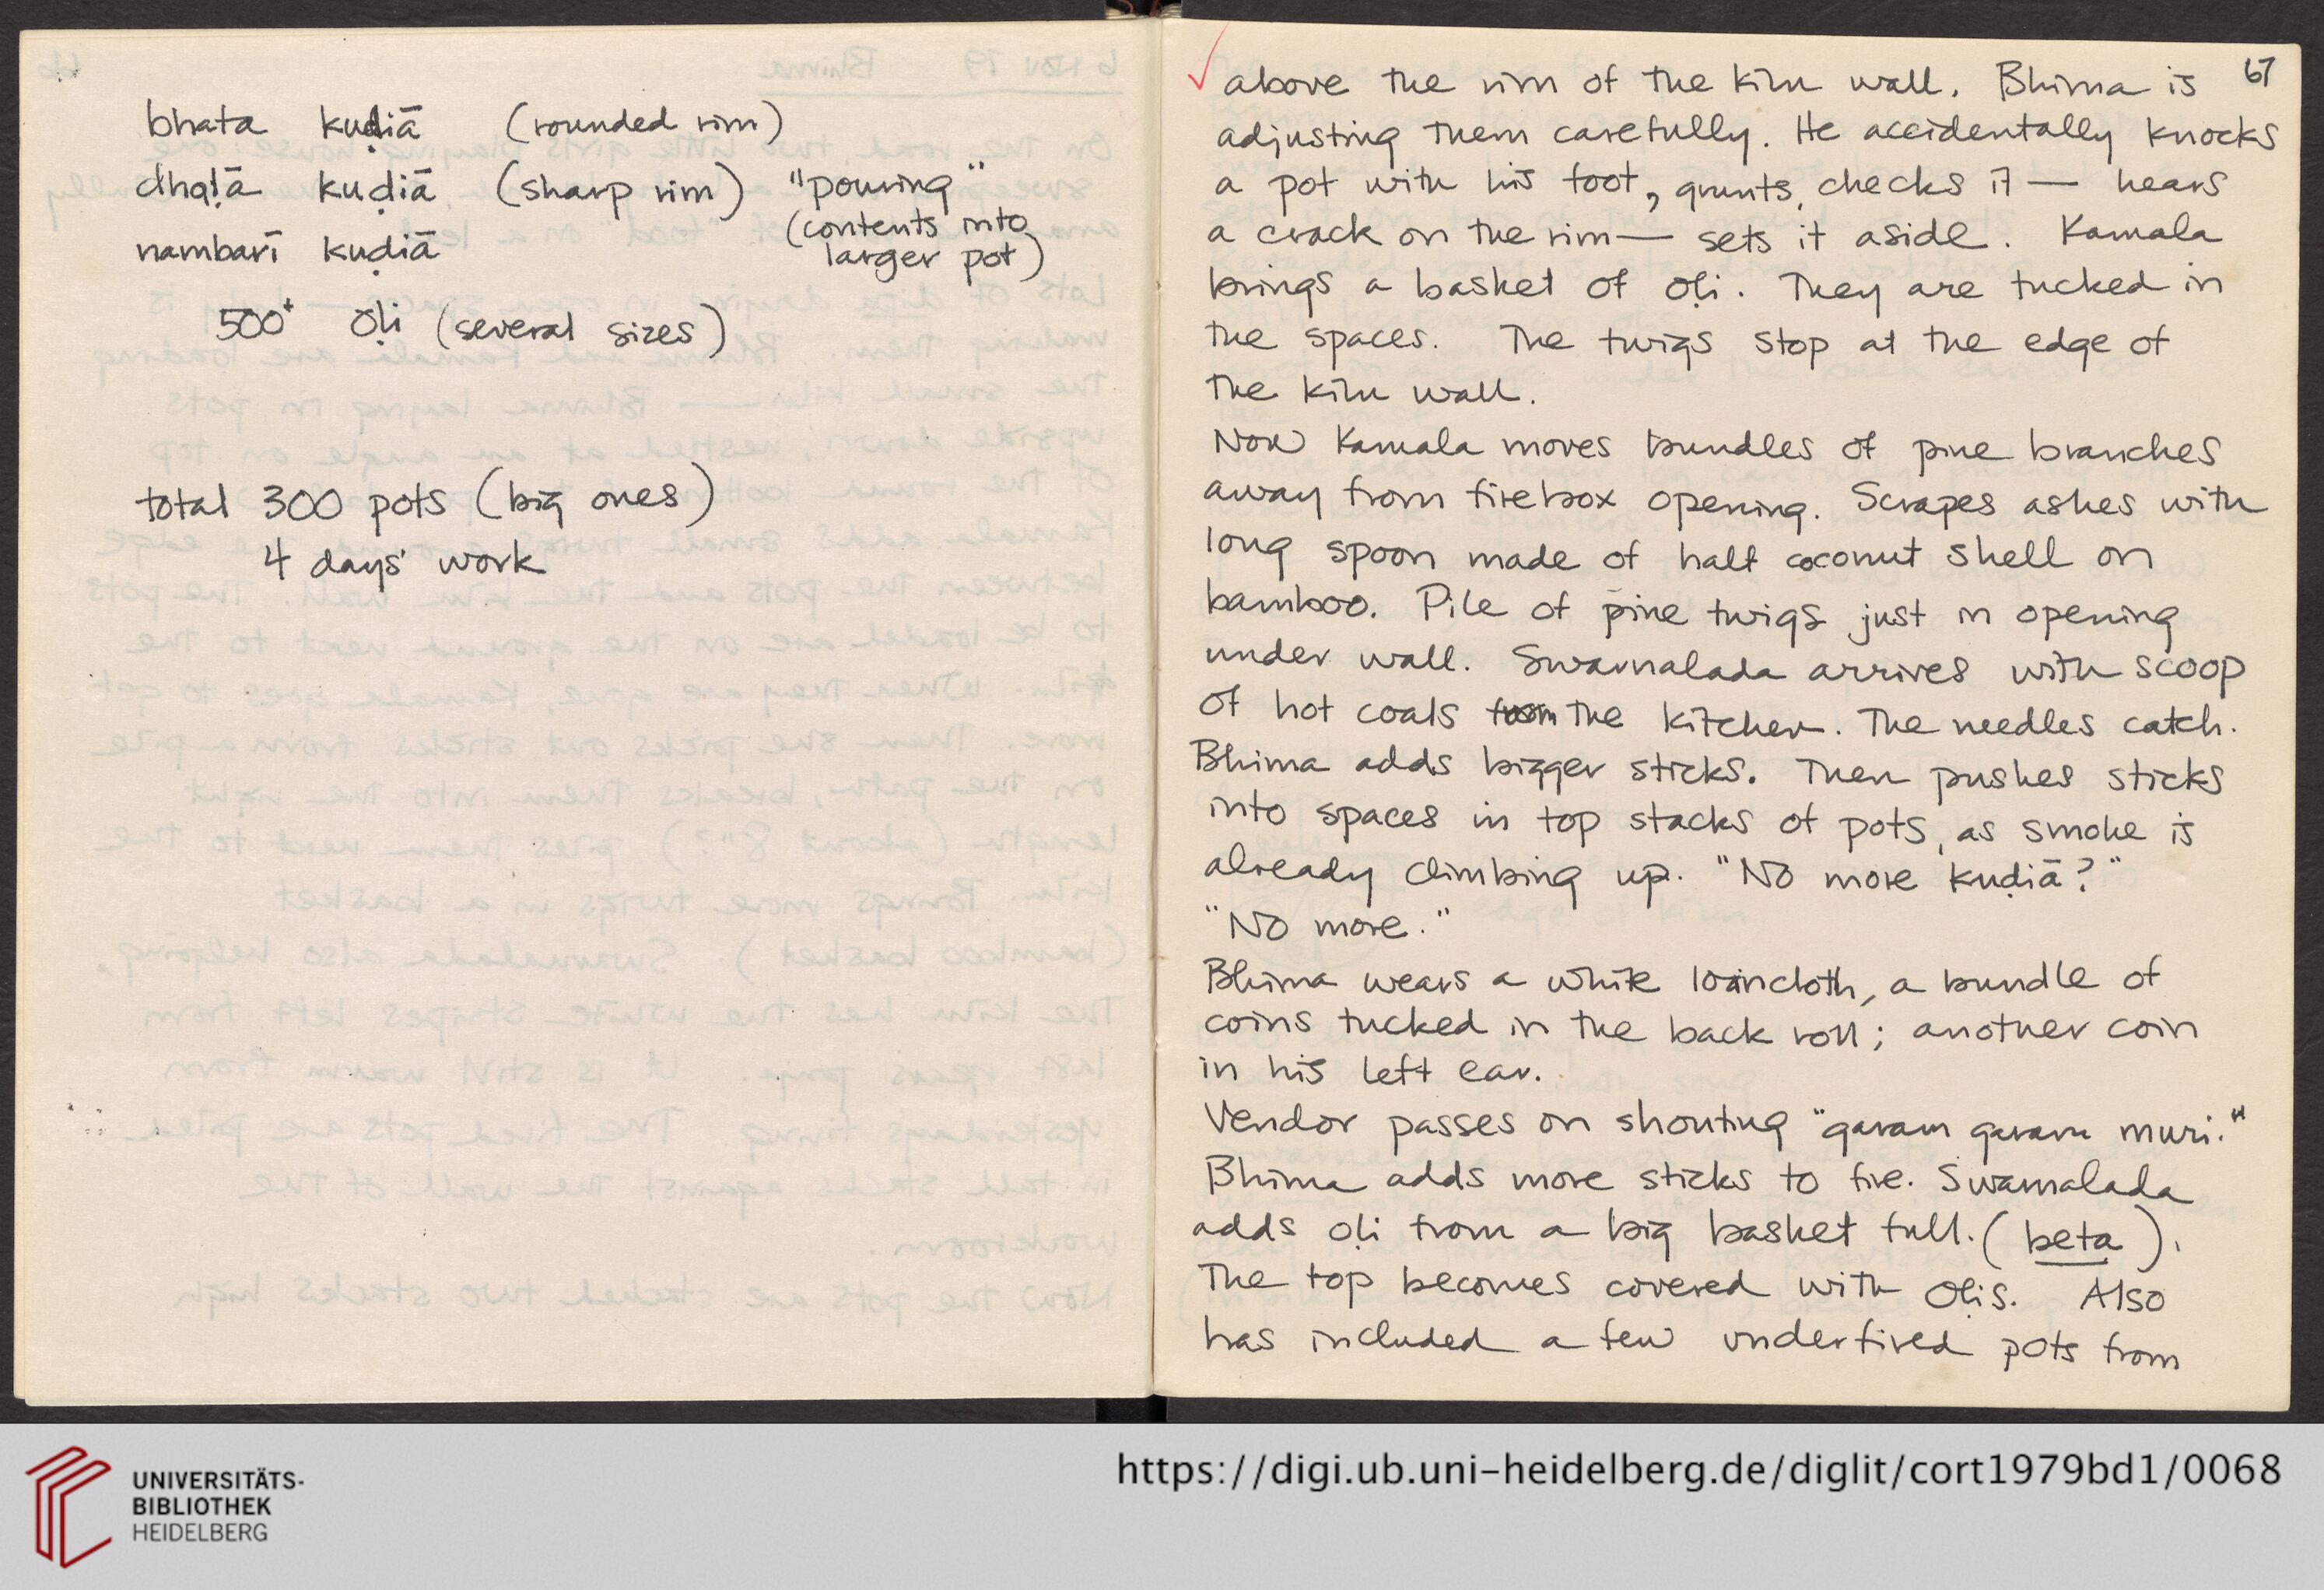 bhata kuḍiā (rounded rim)
dhaḷā kuḍiā (sharp rim) "pouring"
(contents into
larger pot)
nambarī kuḍiā
500+ oḷi (several sizes)
total 300 pots (big ones)
4 days' work
67
above the rim of the kiln wall. Bhima is
adjusting them carefully. He accidentally knocks
a pot with his foot, grunts, checks it — hears
a crack on the rim — sets it aside. Kamala
brings a basket of oḷi. They are tucked in
the spaces. The twigs stop at the edge of
the kiln wall.
Now Kamala moves bundles of pine branches
away from firebox opening. Scrapes ashes with
long spoon made of half coconut shell on
bamboo. Pile of pine twigs just in opening
under wall. Swarnalada arrives with scoop
of hot coals from the kitchen. The needles catch.
Bhima adds bigger sticks. Then pushes sticks
into spaces in top stacks of pots, as smoke is
already climbing up. "No more kuḍiā?"
"No more."
Bhima wears a white loincloth, a bundle of
coins tucked in the back roll; another coin
in his left ear.
Vendor passes on shouting "garam garam muri."
Bhima adds more sticks to fire. Swarnalada
adds oḷi from a big basket full. (beta).
The top becomes covered with oḷis. Also
has included a few underfired pots from
UNIVERSITÄTS-
BIBLIOTHEK
HEIDELBERG
https://digi.ub.uni-heidelberg.de/diglit/cort1979bd1/0068